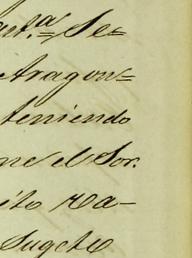 Se=
Aragon=
teniendo
me el Sor.
ito ra-
Sugeto